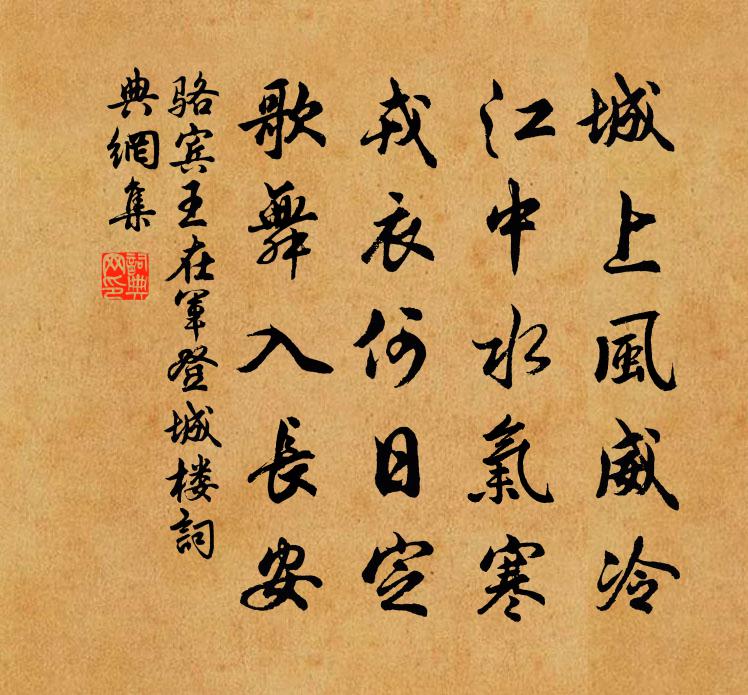 城上風威冷
江中水氣寒
戎衣何日定
歌舞入長安
骆宾王在軍登城楼詞
典網集
詞典
网印